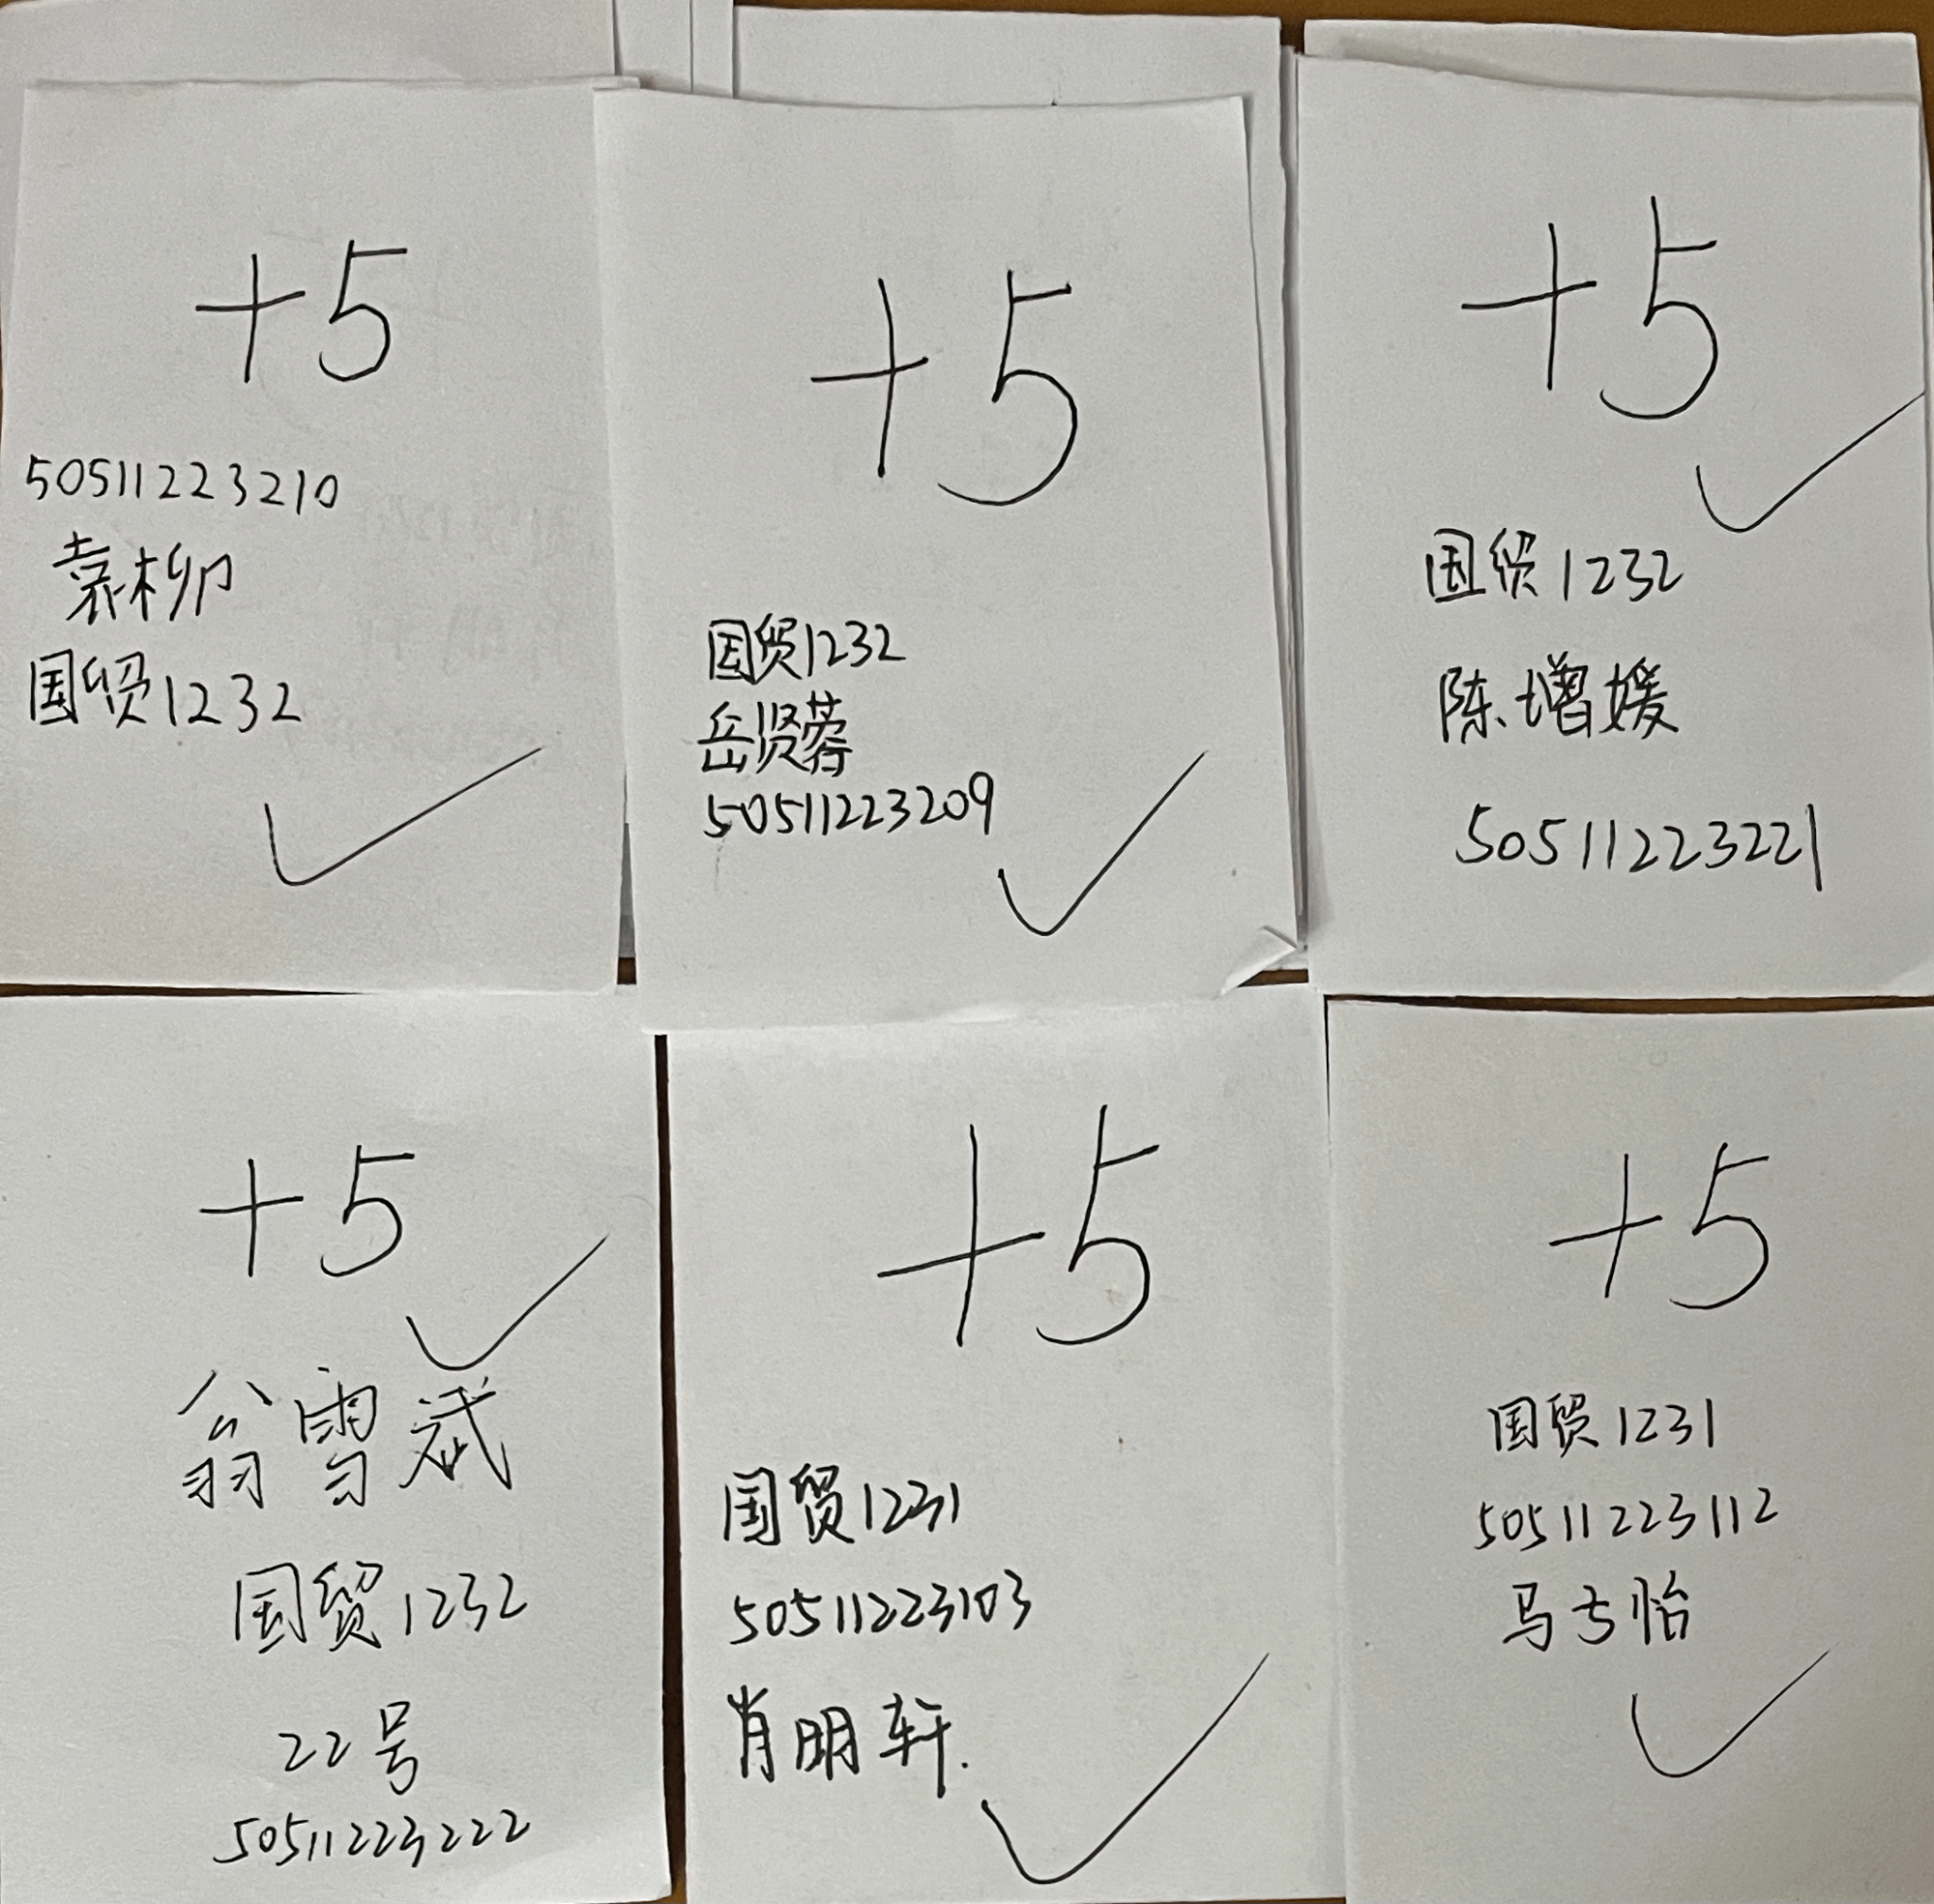 +5
50511223210
袁柳
国贸1232
+5
国贸1232
岳贤蓉
50511223209
+5
国贸1232
陈增媛
50511223221
+5
翁雪斌
国贸1232
22号
50511223222
+5
国贸1231
50511223103
肖明轩.
+5
国贸1231
50511223112